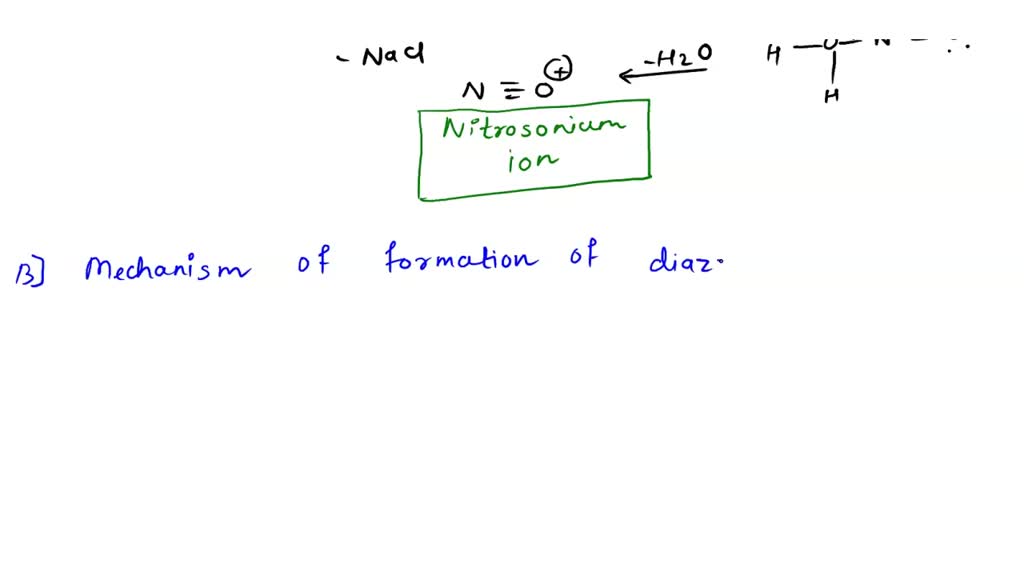 - NaCl
-H2O
H
N
N ≡ O⊕
H
Nitrosonium
ion
B] Mechanism of formation of diaz